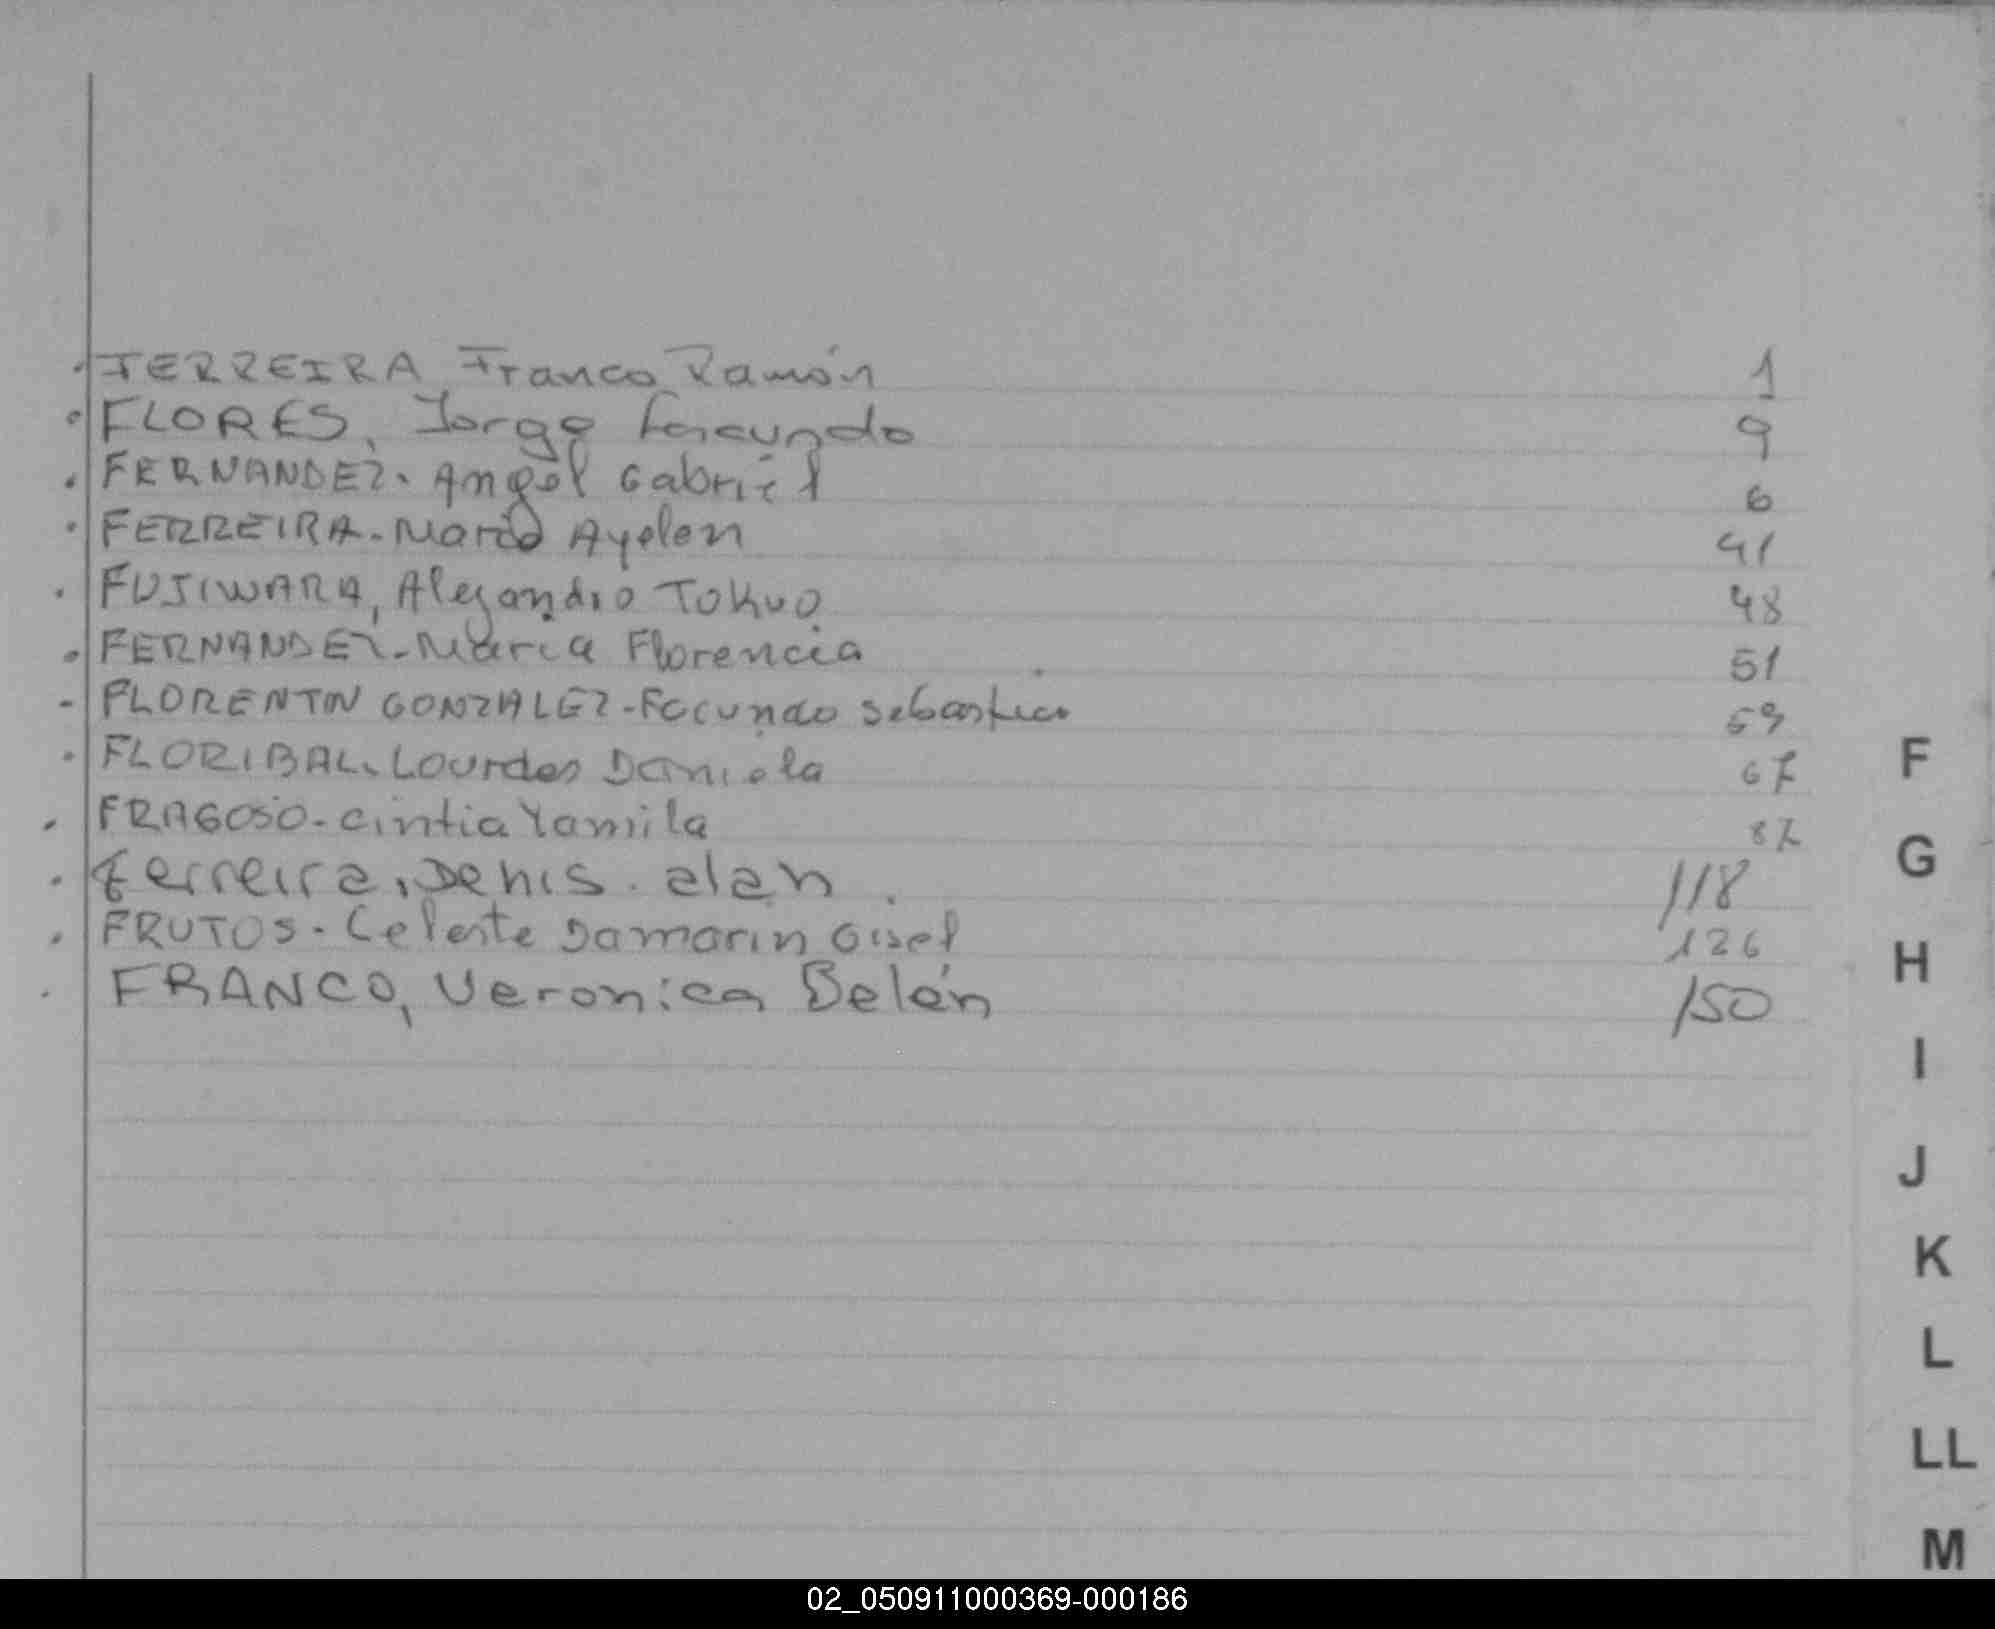 FERREIRA, Franco Ramón 1
FLORES, Jorge Facundo 9
FERNANDEZ. Angel Gabriel 6
FERREIRA. Maria Ayelen 41
FUJIWARA, Alejandro Tokuo 48
FERNANDEZ - Maria Florencia 51
FLORENTIN GONZALEZ - Facundo Sebastian 59
FLORIBAL. Lourdes Daniela 67
F
FRAGOSO - Cintia Yamila 87
G
Ferreira, Denis. alan 118
FRUTOS - Celeste Damarin Gisel 126
H
FRANCO, Veronica Belén 150
I
J
K
L
LL
M
02_050911000369-000186